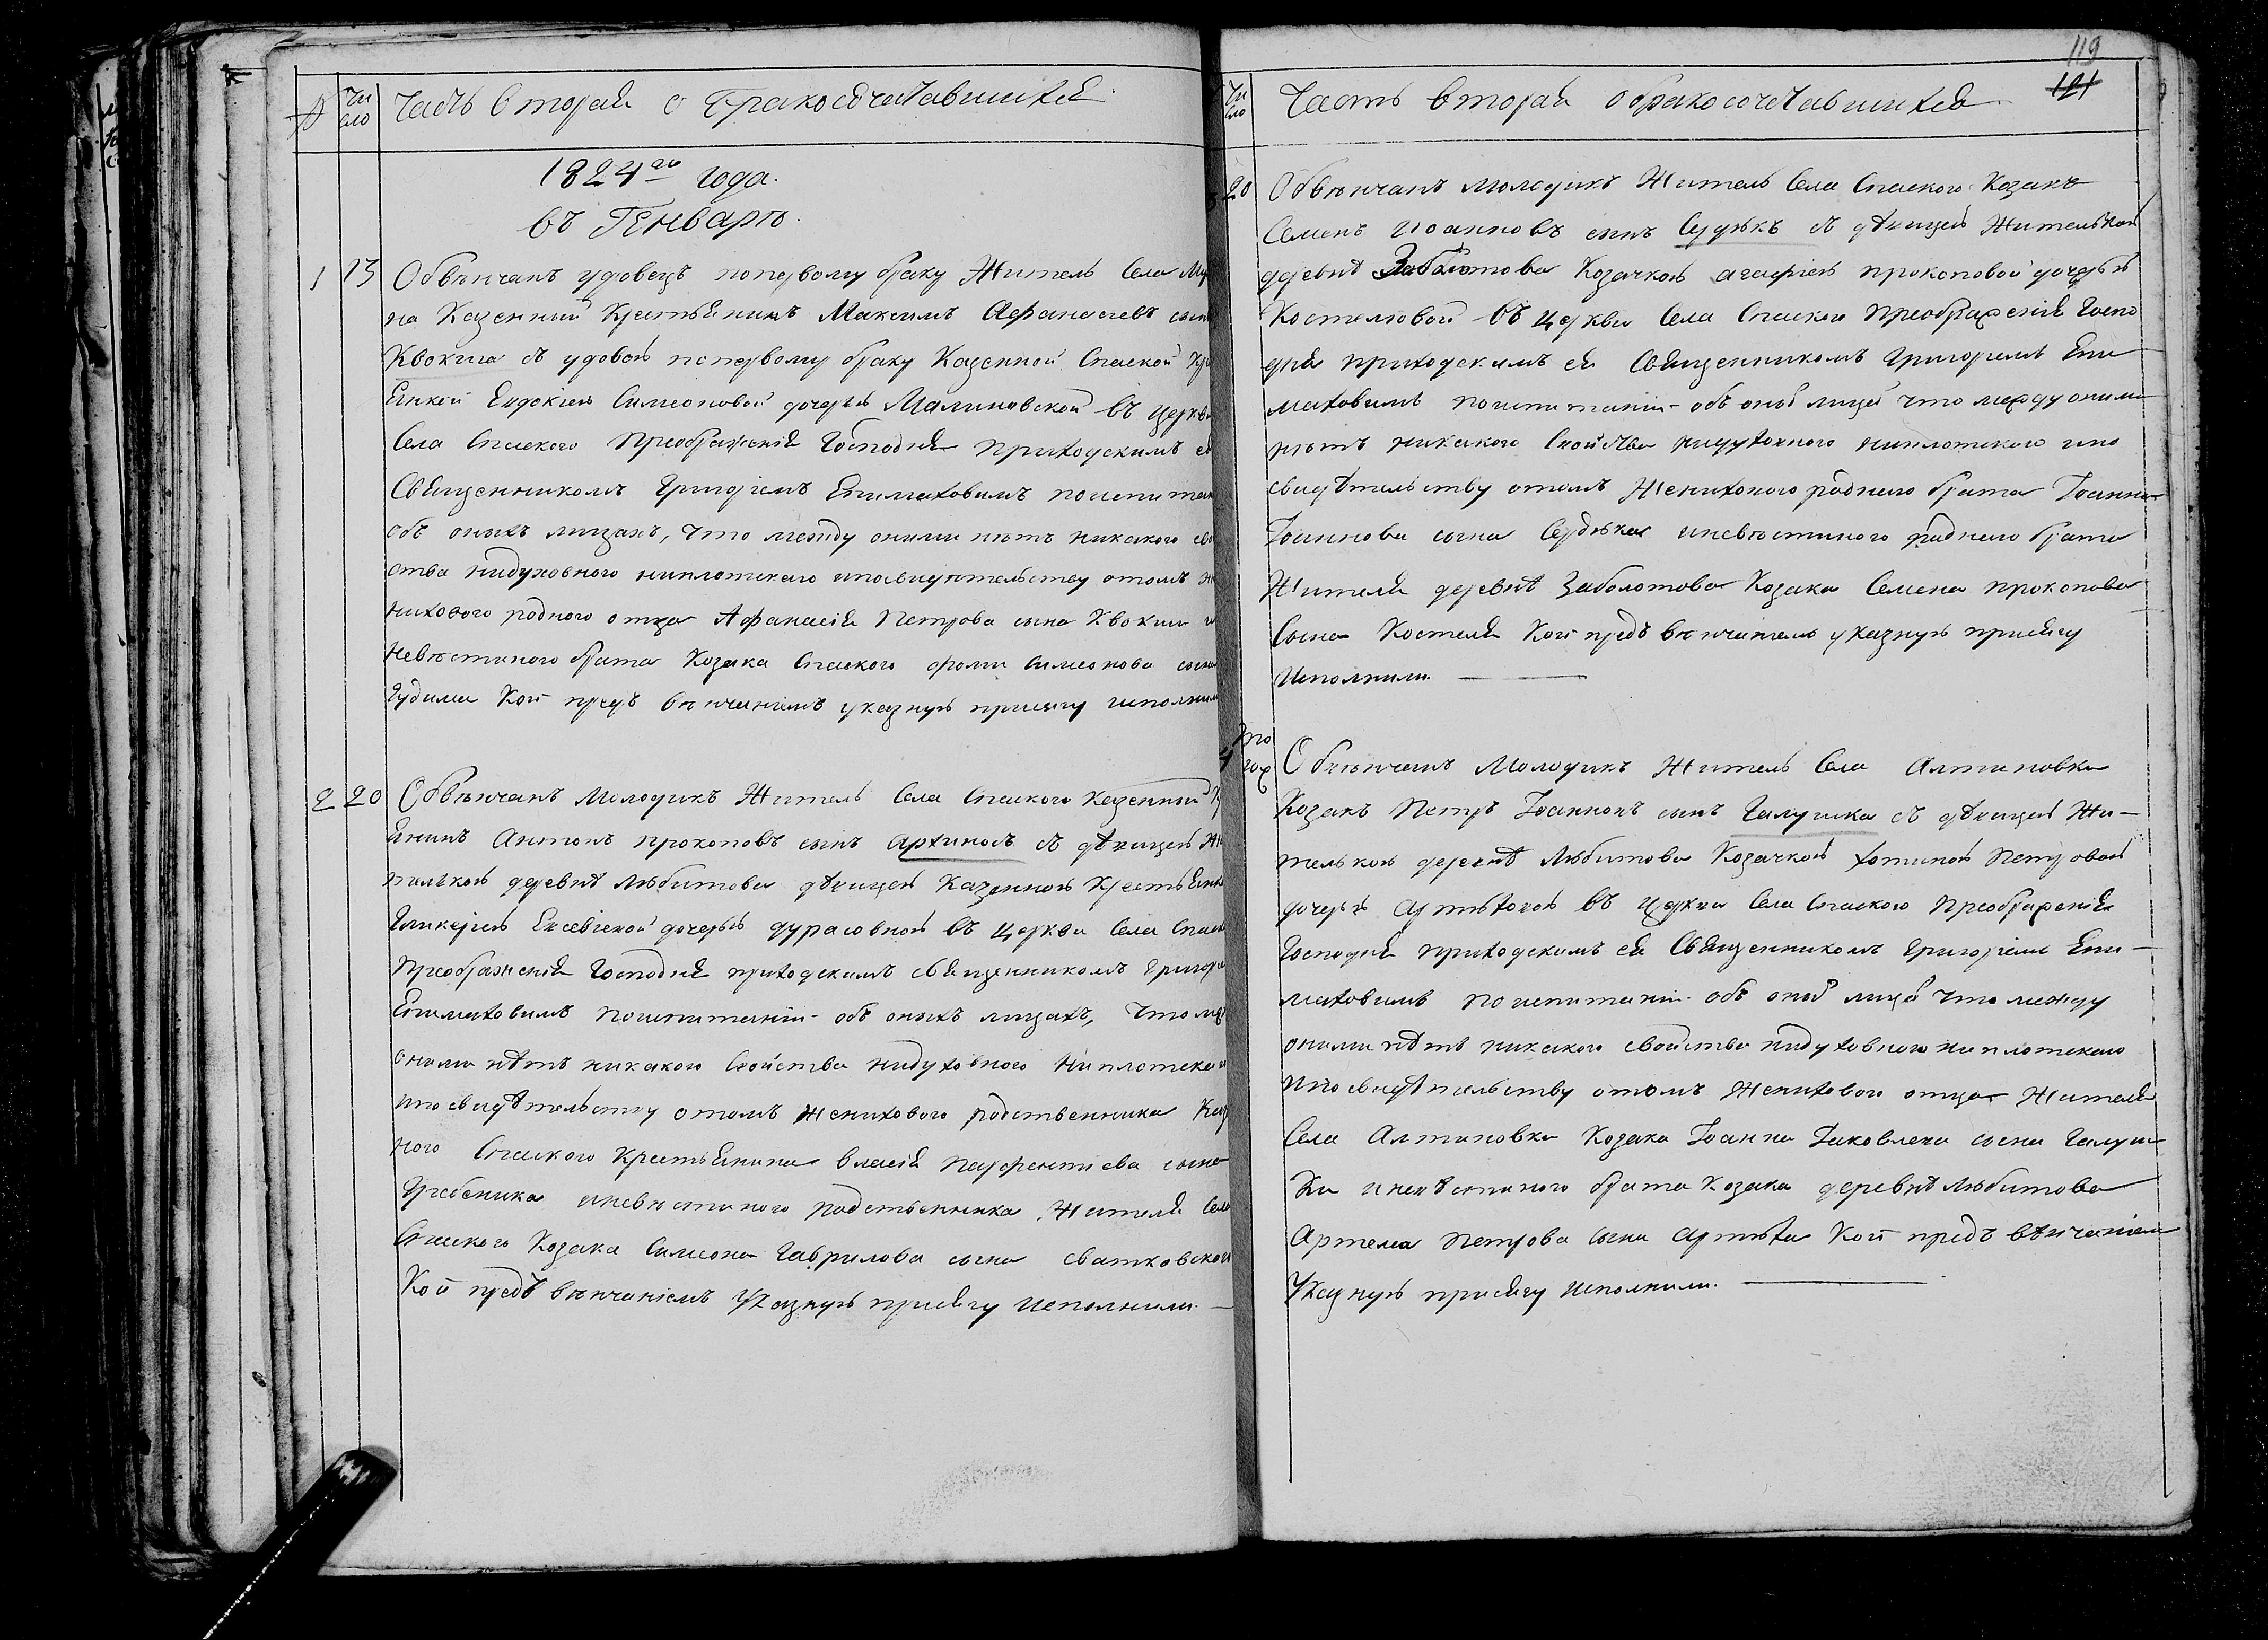 № Чи
сло Часть вторая о бракосочетавшихся
1824го года.
въ Генварѣ.
1 13 Обвѣнчанъ удовецъ попервому браку Житель Села Му
на Казенный Крестьянинъ Максимъ Афанасіевъ сынъ
Квокша съ удовою попервому браку Казенной Спаской Кр
янкой Евдокіею Симеоновой дочерью Малиновской въ церкви
Села Спаского Преображенія Господня Приходскимъ ея
Священникомъ Григоріемъ Епимаховимъ поиспитан
объ онихъ лицахъ, что между оними нѣтъ никакого сво
ства нидуховного ниплотского ипосвидѣтельству отомъ же
нихового родного отца Афанасія Петрова сына Квокши и
невѣстиного брата Козака Спаского Фоми Симеонова сына
Гудими Кои предъ вѣнчаніемъ указную присягу исполнили
2 20 Обвѣнчанъ Молодикъ Житель Села Спаского Казенный Кр
янинъ Антонъ Прокоповъ сынъ Архиносъ съ дѣвицею Жи
телькою деревнѣ Любитова дѣвицею Казенною Крестьянк
Гликеріею Евсевіевой дочерью дурасовною въ Церкви Села Спаск
Преображенія Господня приходскимъ священникомъ Григорі
Епимаховимъ Поиспитаніи объ онихъ лицахъ, что меж
оними нѣтъ никакого свойства нидуховного ниплотского
ипосвидѣтельству отомъ женихового родственника Каз
ного Спаского Крестьянина Власія Парфентіева сына
Гребеника иневѣстиного родственника Жителя Села
Спаского Козака Симеона Гаврилова сына Сватковского
Кои предъ вѣнчаніемъ Указную присягу исполнили.
119
121
Чи
сло Часть вторая о бракосочетавшихся
20 Обвѣнчанъ молодикъ Житель Села Спаского Козакъ
Семенъ Иоанновъ сынъ Судѣкъ съ дѣвицею Жителькою
деревнѣ Заболотова Козачкою Агафіею Прокоповой дочерью
Костелювой въ Церкви Села Спаского Преображенія Госпо
дня приходскимъ ея Священникомъ Григоріемъ Епи
маховимъ поиспитаніи объ оной лицѣ что между оними
нѣтъ никакого свойства нидуховного ниплотского ипо
свидѣтельству отомъ Женихового родного брата Іоанна
Іоаннова сына Судѣка иневѣстиного родного брата
Жителя деревнѣ Заболотова Козака Семена Прокопова
Сына Костеля Кои предъ вѣнчаніемъ указную присягу
Исполнили.
4 то
гож Обвѣнчанъ Молодикъ Житель Села Алтиновки
Козакъ Петръ Іоанновъ сынъ Галушка съ дѣвицею Жи-
телькою деревнѣ Любитова Козачкой Хотиной Петровой
дочерью Артюховою въ Церкви Села Спаского Преображенія
Господня приходскимъ ея Священникомъ Григоріемъ Епи-
маховимъ поиспитаніи объ оной лицѣ что между
оними нѣтъ никакого свойства нидуховного ниплотского
ипосвидѣтельству отомъ Женихового отца Жителя
Села Алтиновки Козака Іоанна Іаковлева сына Галуш
ки иневѣстиного брата Козака деревнѣ Любитова
Артема Петрова сына Артюха Кои предъ вѣнчаніемъ
Указную присягу исполнили.